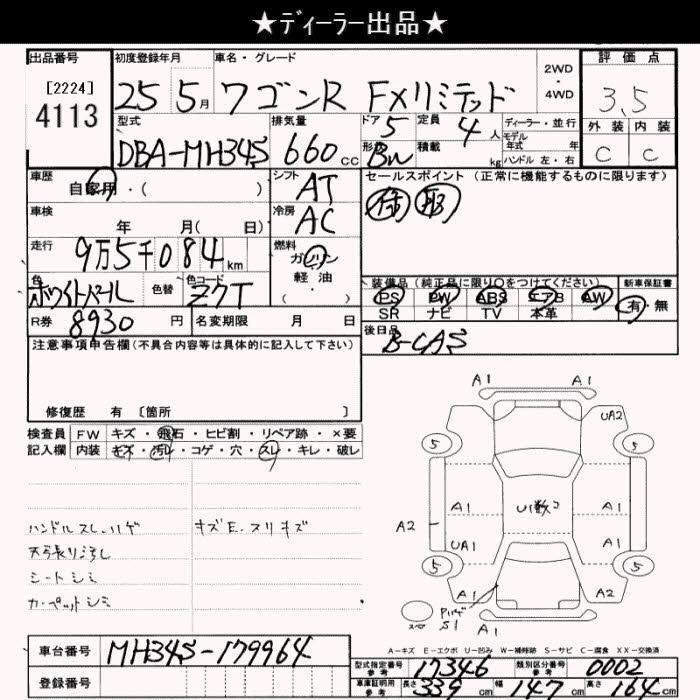 ★ディーラー出品★
出品番号 初度登録年月 車名・グレード 2WD・4WD 評価点
[2224]
4113 25 5月 ワゴンR FXリミテッド 3.5
型式 排気量 ドア 定員 ディーラー・並行 外装 内装
DBA-MH34S 660cc 5 4人 モデル年式 年
形状 Bw 積載 kg ハンドル 左・右 C C
車歴 シフト セールスポイント(正常に機能するものに限ります)
自家用・( ) AT
車検 冷房
年 月( 日) AC
走行 燃料
9万5千084km ガソリン
軽油
・( )
色 色替 色コード 装備品(純正品に限り○をつけてください) 新車保証書
ホワイトパール Z7T PS PW ABS エアB AW 有・無
SR ナビ TV 本革
R券 8930円 名変期限 月 日 後日品
B-CAS
注意事項申告欄(不具合内容等は具体的に記入して下さい)
修復歴 有 [箇所 ]
検査員 FW キズ・飛石・ヒビ割・リペア跡・×要
記入欄 内装 キズ・汚レ・コゲ・穴・スレ・キレ・破レ
ハンドルスレ、ハゲ キズE、スリキズ
天張り汚れ
シートシミ
カーペットシミ
A1 A1
UA2
5 5
A1 A1
U1数コ
A2
UA1 A1
5 5
A1 A2
S1
A1
A-キズ E-エクボ U-凹み W-補修跡 S-サビ C-腐食 XX-交換済
車台番号 MH34S-179964
登録番号
型式指定番号 参考 17346 類別区分番号 参考 0002
車庫証明用 参考 長さ 339cm 幅 147cm 高さ 164cm